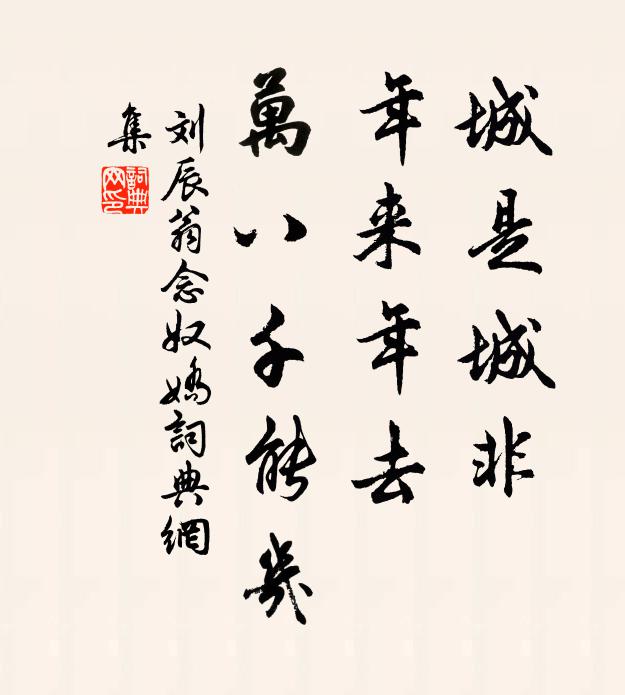 城是城非
年来年去
萬八千能幾
刘辰翁念奴嬌詞典網
集
詞典
网印